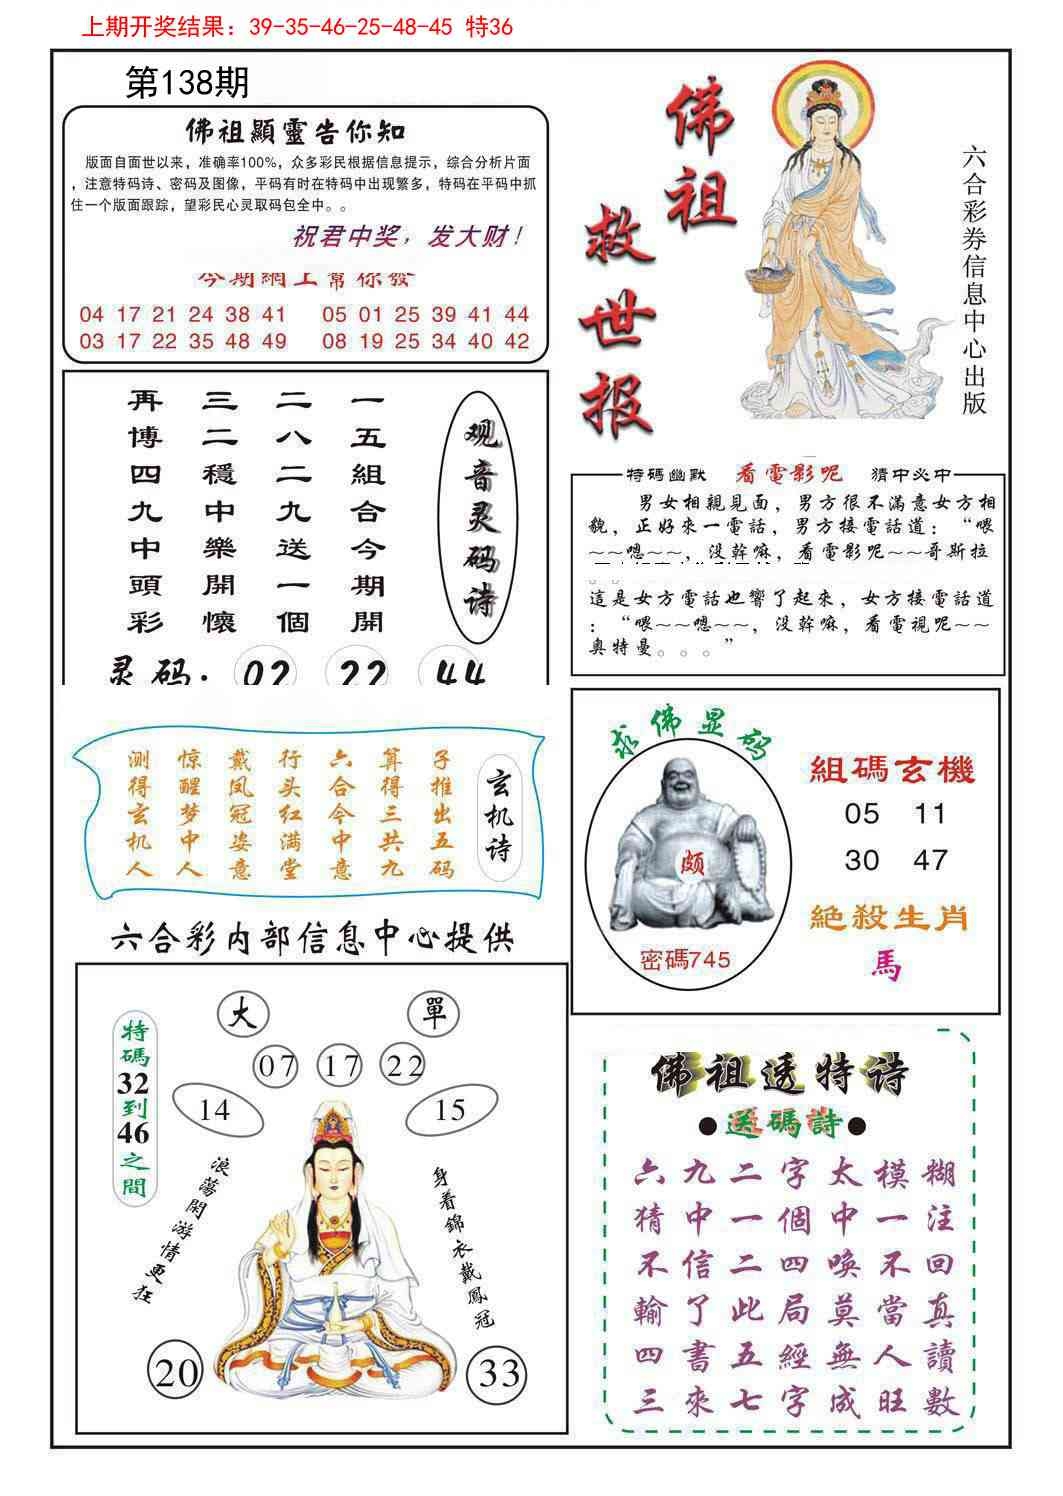 上期开奖结果：39-35-46-25-48-45 特36
第138期
佛祖顯靈告你知
版面自面世以来，准确率100%，众多彩民根据信息提示，综合分析片面
，注意特码诗、密码及图像，平码有时在特码中出现繁多，特码在平码中抓
住一个版面跟踪，望彩民心灵取码包全中。。
祝君中奖，发大财！
今期網上幫你發
04 17 21 24 38 41 05 01 25 39 41 44
03 17 22 35 48 49 08 19 25 34 40 42
佛祖
救世报
六合彩券信息中心出版
观音灵码诗
一五組合今期開
二八二九送一個
三二穩中樂開懷
再博四九中頭彩
灵码：02 22 44
特碼幽默 看電影呢 猜中必中
男女相親見面，男方很不滿意女方相
貌，正好來一電話，男方接電話道：“喂
~~嗯~~，没幹嘛，看電影呢~~哥斯拉
這是女方電話也響了起來，女方接電話道
：“喂~~嗯~~，没幹嘛，看電視呢~~
奥特曼。。。”
玄机诗
子推出五码
算得三共九
六合今中意
行头红满堂
戴凤冠姿意
惊醒梦中人
测得玄机人
六合彩内部信息中心提供
求佛显码
颇
密碼745
組碼玄機
05 11
30 47
絶殺生肖
馬
大 單
07 17 22
14 15
特碼32到46之間
浪蕩閑游情更狂
身着錦衣戴鳳冠
20 33
佛祖透特诗
●送碼詩●
六九二字太模糊
猜中一個中一注
不信二四喚不回
輸了此局莫當真
四書五經無人讀
三來七字成旺數